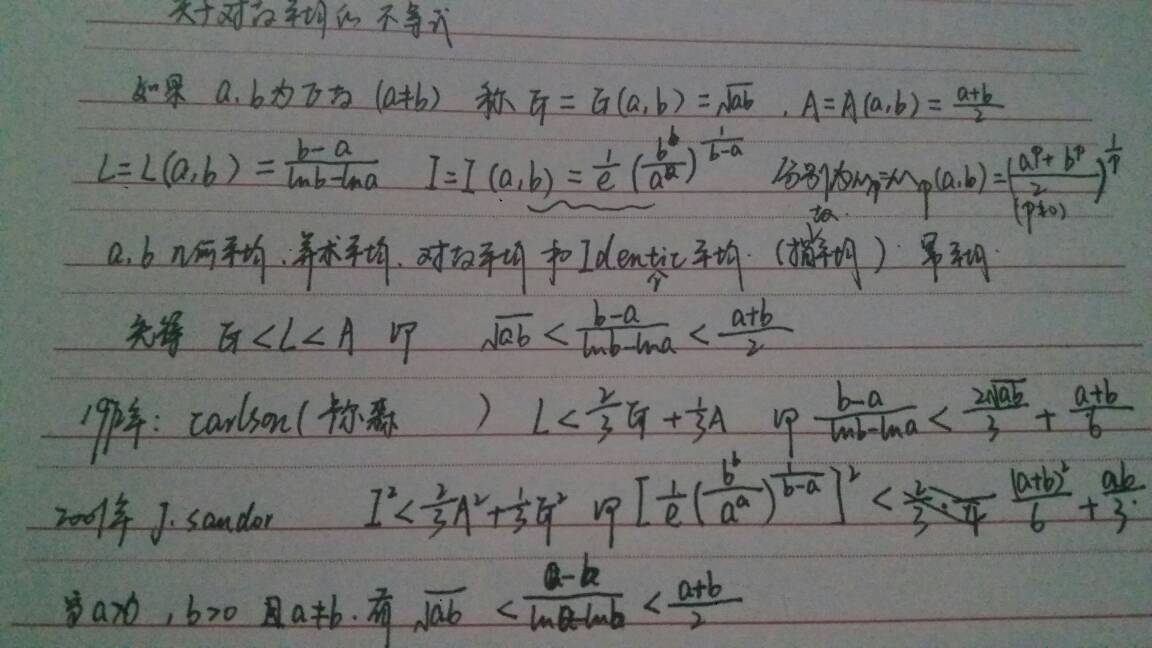 关于对数平均的不等式
如果 a.b为正数 (a≠b) 称 G = G(a,b) = √ab . A = A(a,b) = (a+b)/2
L = L(a,b) = (b-a)/(lnb-lna) I = I(a,b) = 1/e (b^b/a^a)^(1/(b-a)) 分别为 Mp=Mp(a,b) = ((a^p+b^p)/2)^(1/p) (p≠0)
a.b 几何平均.算术平均.对数平均 和 Identic平均.(指数平均).幂平均.
先得 G<L<A 即 √ab < (b-a)/(lnb-lna) < (a+b)/2
carlson(卡尔森 ) L < 2/3 G + 1/3 A 即 (b-a)/(lnb-lna) < 2√ab/3 + (a+b)/6
2001年 J. sandor I² < 2/3 A² + 1/3 G² 即 [1/e (b^b/a^a)^(1/(b-a))]² < (a+b)²/6 + ab/3.
当 a>0 , b>0 且 a≠b . 有 √ab < (a-b)/(lna-lnb) < (a+b)/2